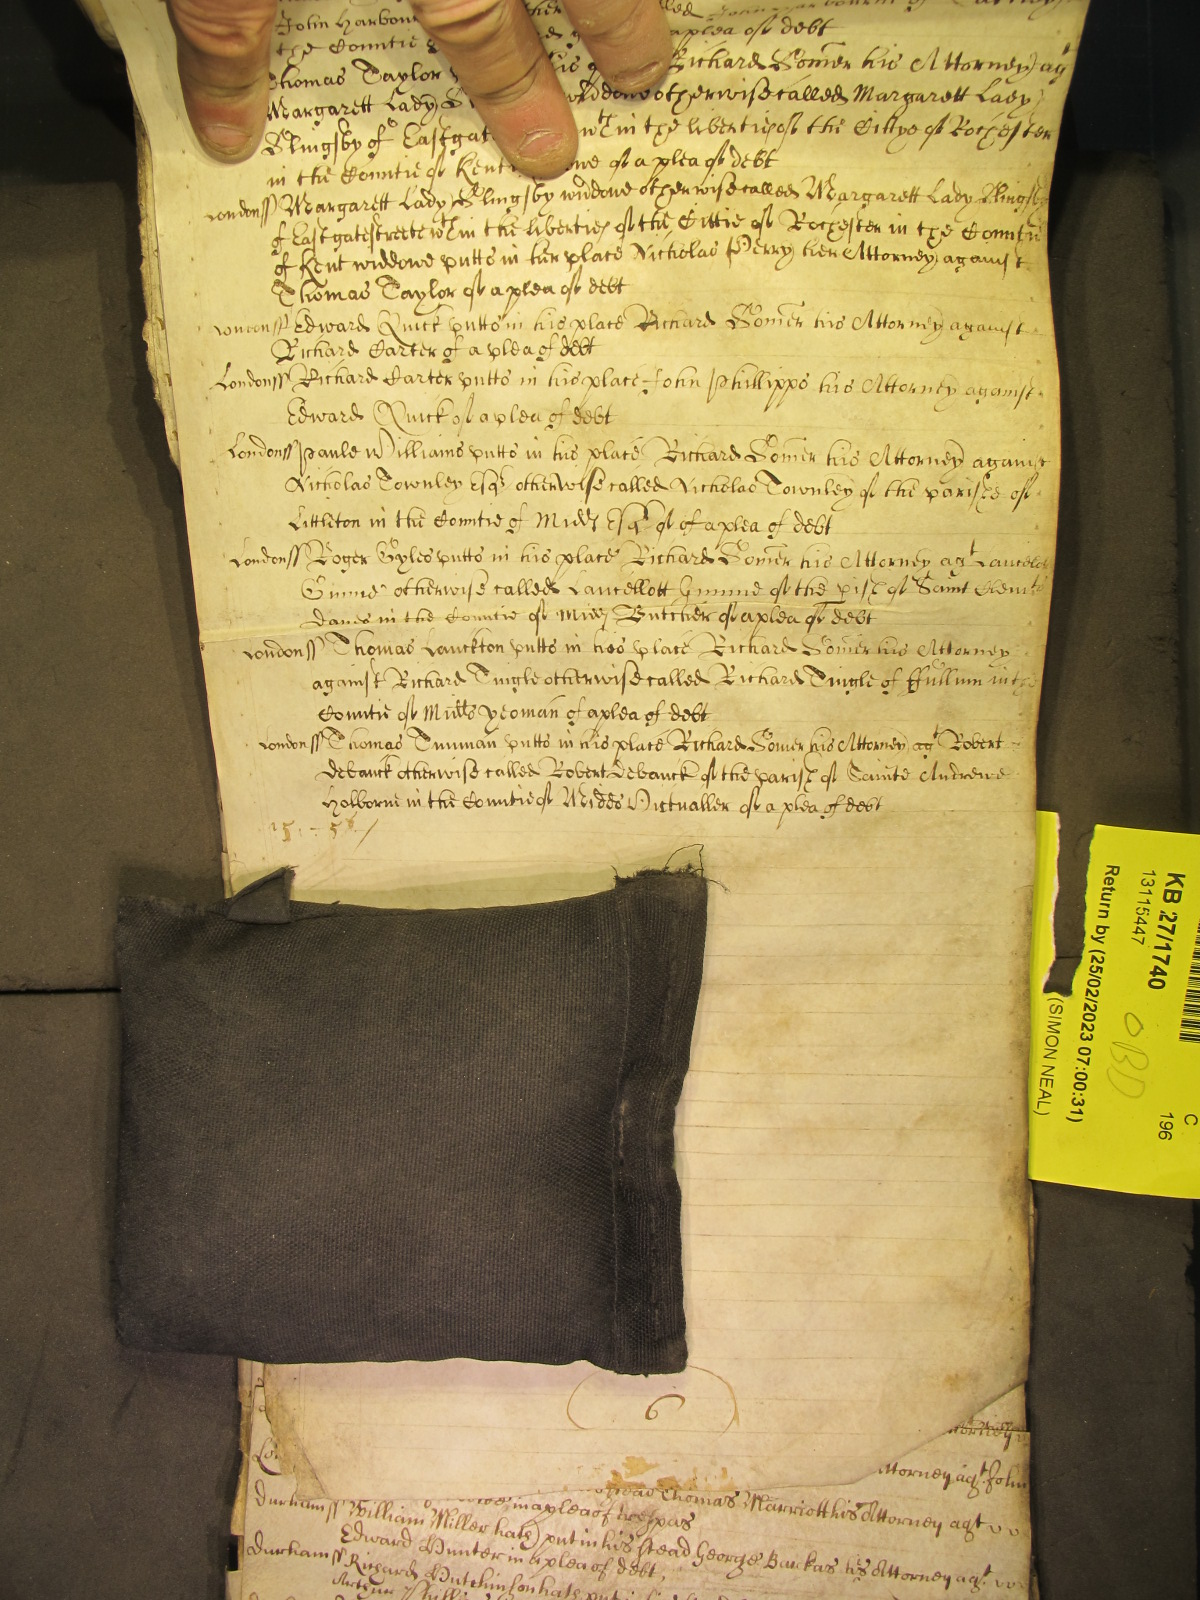 John Harbon
the Countie a plea of debt
Thomas Taylor his Richard Somer his Attorney ag
Margarett Lady widdowe otherwise called Margarett Lady
Slingsby of Eastgat wth in the liberties of the Cittye of Rochester
in the Countie of Kent of a plea of debt
Londonss Margarett Lady Slingsby widdowe otherwise called Margarett Lady Slingsby
of Eastgatestreete wth in the liberties of the Cittie of Rochester in the Countie
of Kent widdowe putts in her place Nicholas Perry her Attorney against
Thomas Taylor of a plea of debt
Londonss Edward Quick putts in his place Richard Somer his Attorney against
Richard Carter of a plea of debt
Londonss Richard Carter putts in his place John Phillipps his Attorney against
Edward Quick of a plea of debt
Londonss Paule Williams putts in his place Richard Somer his Attorney against
Nicholas Townley Esqr otherwise called Nicholas Townley of the parishe of
Littleton in the Countie of Midds Esqr of a plea of debt
Londonss Roger Gyles putts in his place Richard Somer his Attorney agt
otherwise called Lancellott of the pish of Saint Clemts
Danes in the Countie of Midds Butcher of a plea of debt
Londonss Thomas Lanckton putts in his place Richard Somer his Attorney
against Richard Tingle otherwise called Richard Tingle of ffullum in the
Countie of Midds yeoman of a plea of debt
Londonss Thomas putts in his place Richard Somer his Attorney agt Robert
Debanck otherwise called Robert Debanck of the parish of Sainte Andrewe
Holborne in the Countie of Midds Victualler of a plea of debt
6
Attorney agt John
Thomas Marriott his Attorney agt
in a plea of trespas
Durhamss William Miller hath put in his stead George Barkas his Attorney agt
Edward Hunter in a plea of debt
Durhamss Richard Hutchinson hath put
KB 27/1740
13115447
Return by (25/02/2023 07:00:31)
(SIMON NEAL)
OBD
C
196